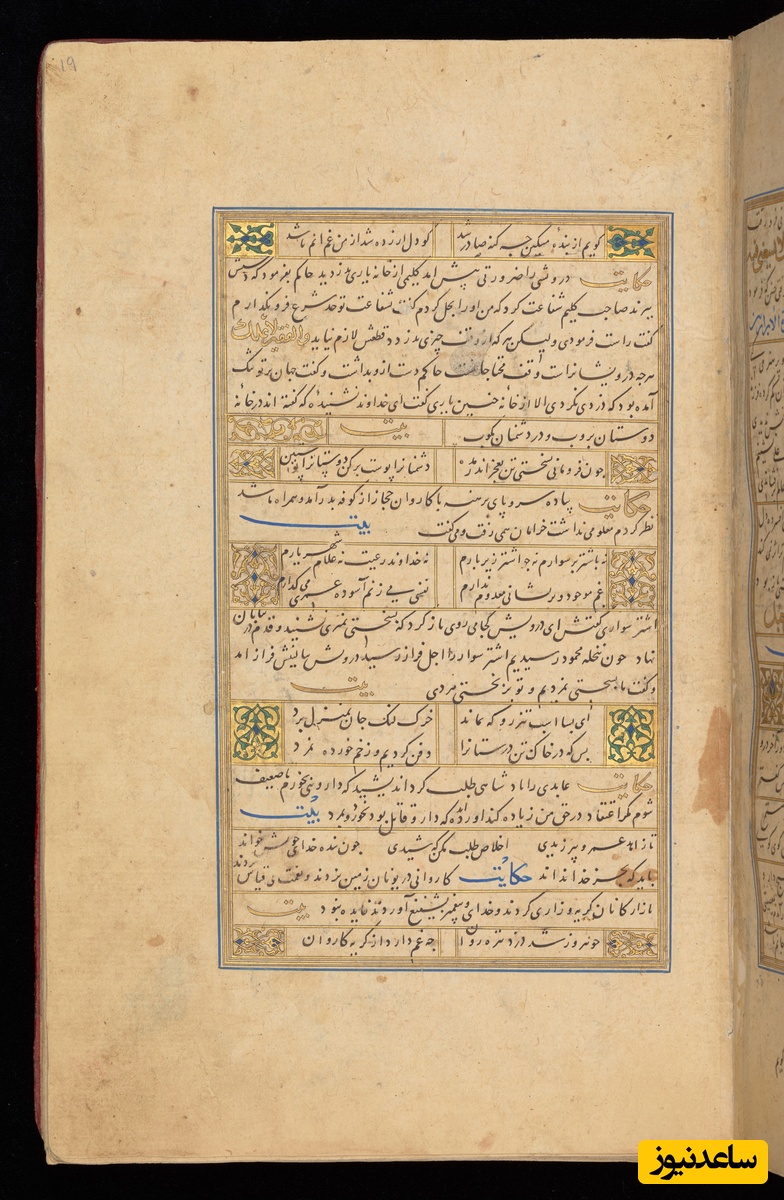 19
گویم از بنده مسکین چه گنه صادر شد کو دل آزرده شد از من غم آنم باشد
حکایت درویشی را ضرورتی پیش آمد گلیمی از خانه یاری بدزدید حاکم بفرمود که دستش
ببرند صاحب گلیم شفاعت کرد که من او را بحل کردم گفتا بشفاعت تو حد شرع فرو نگذارم
گفت راست فرمودی ولیکن هر که از وقف چیزی بدزدد قطعش لازم نیاید والفقیر لا یملک
هرچه درویشانراست وقف محتاجانست حاکم دست ازو بداشت و گفت جهان بر تو تنگ
آمده بود که دزدی نکردی الا از خانه چنین یاری گفت ای خداوند نشنیده که گفته اند در خانه
دوستان بروب و در دشمنان مکوب بیت
چون فرومانی بسختی تن بعجز اندر مده دشمنانرا پوست بر کن دوستانرا پوستین
حکایت پیاده سر و پای برهنه با کاروان حجاز از کوفه بدر آمد و همراه ما شد
نظر کردم معلومی نداشت خرامان همی رفت و می گفت بیت
نه باشتر بر سوارم نه چو اشتر زیر بارم نه خداوند رعیت نه غلام شهریارم
غم موجود و پریشانی معدوم ندارم نفسی می زنم آسوده و عمری می گذارم
اشتر سواری گفتش ای درویش کجا می روی باز گرد که بسختی بمیری نشنید و قدم در بیابان
نهاد چون نخله محمود رسیدیم اشتر سوار را اجل فرا رسید درویش ببالینش فراز آمد
و گفت ما بسختی نمردیم و تو بر بختی مردی بیت
ای بسا اسب تیزرو که بماند خرک لنگ جان بمنزل برد
بس که در خاک تن درستانرا دفن کردیم و زخم خورده نمرد
حکایت عابدی را پادشاهی طلب کرد اندیشید که داروئی بخورم تا ضعیف
شوم مگر اعتقاد در حق من زیاده کند آورده اند که دارو قاتل بود بخورد و بمرد بیت
تا زاهد عمرو و بکر و زیدی اخلاص طلب مکن که شیدی چون بنده خدای خویش خواند
باید که بجز خدا نداند حکایت کاروانی در یونان زمین بزدند و نعمت بی قیاس بردند
بازارگانان گریه و زاری کردند و خدای و پیغمبر بشفیع آوردند فایده نبود بیت
چو پیروز شد دزد تیره روان چه غم دارد از گریه کاروان
ساعدنیوز